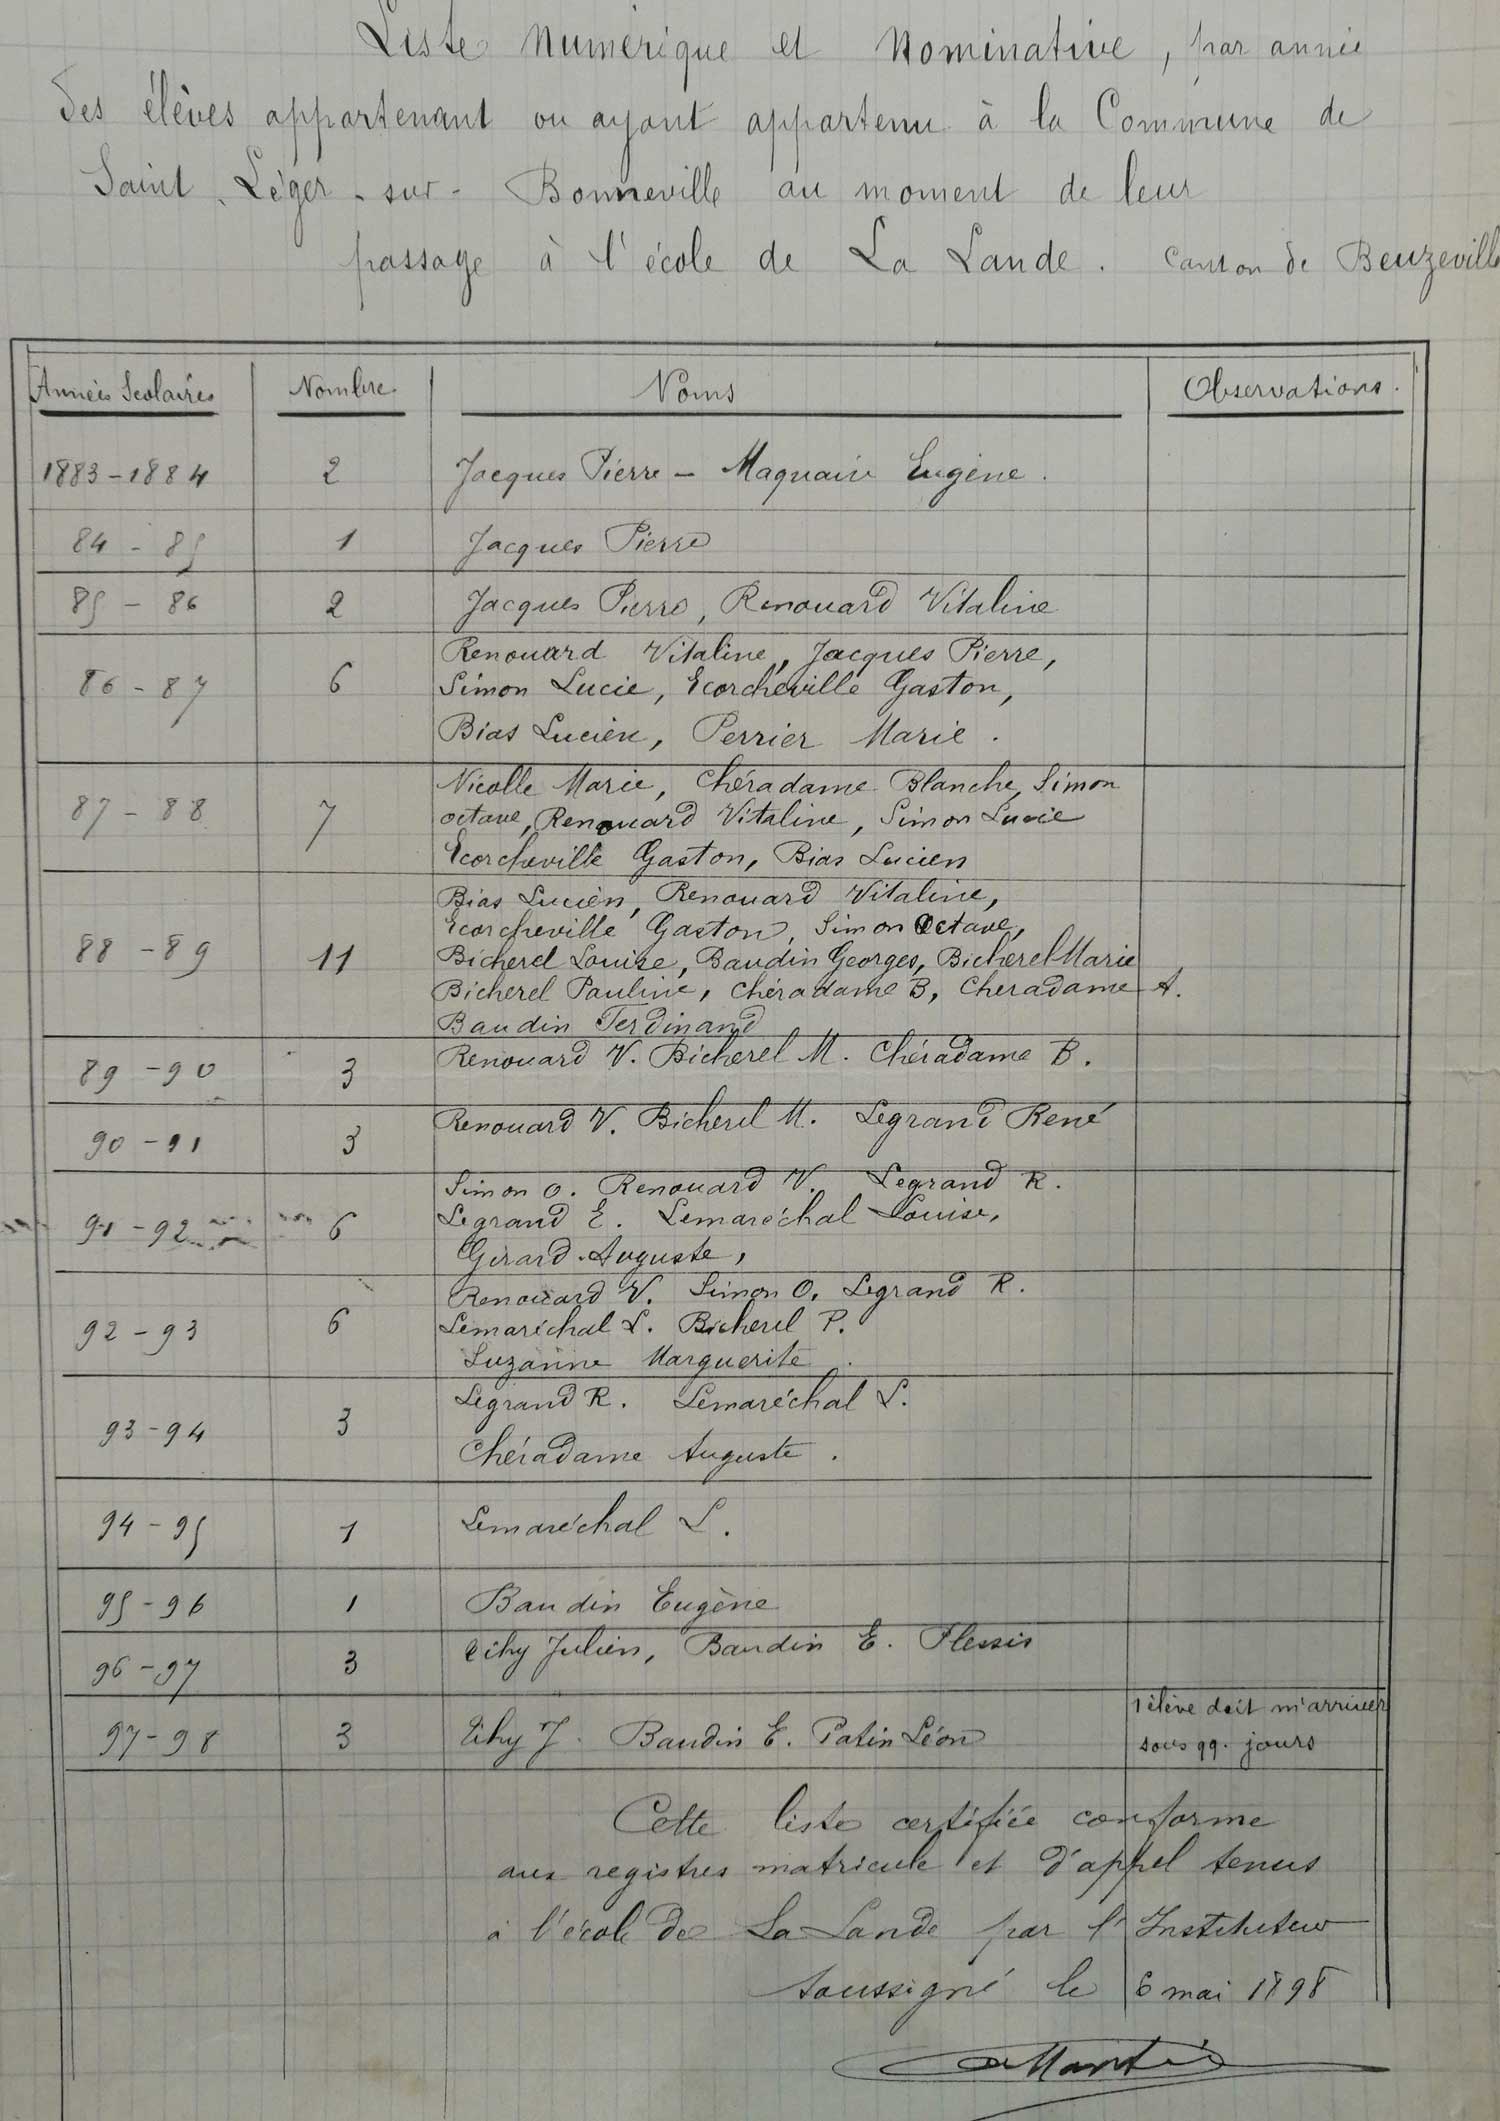 Liste Numérique et Nominative, par année
des élèves appartenant ou ayant appartenu à la Commune de
Saint-Léger-sur-Bonneville au moment de leur
passage à l'école de La Lande. Canton de Beuzeville
Années Scolaires Nombre Noms Observations.
1883-1884 2 Jacques Pierre - Maquaire Eugène.
84-85 1 Jacques Pierre
85-86 2 Jacques Pierre, Renouard Vitaline
Renouard Vitaline, Jacques Pierre,
86-87 6 Simon Lucie, Ecorcheville Gaston,
Bias Lucien, Perrier Marie.
Nicolle Marie, Chéradame Blanche, Simon
87-88 7 octave, Renouard Vitaline, Simon Lucie
Ecorcheville Gaston, Bias Lucien
Bias Lucien, Renouard Vitaline,
Ecorcheville Gaston, Simon Octave,
88-89 11 Bicherel Louise, Baudin Georges, Bicherel Marie
Bicherel Pauline, Chéradame B, Cheradame A.
Baudin Ferdinand
89-90 3 Renouard V. Bicherel M. Chéradame B.
90-91 3 Renouard V. Bicherel M. Legrand René
Simon O. Renouard V. Legrand R.
91-92 6 Legrand E. Lemaréchal Louise,
Girard Auguste,
Renouard V. Simon O. Legrand R.
92-93 6 Lemaréchal L. Bicherel P.
Suzanne Marguerite.
93-94 3 Legrand R. Lemaréchal L.
Chéradame Auguste.
94-95 1 Lemaréchal L.
95-96 1 Baudin Eugène
96-97 3 Julien, Baudin E. Plessis
97-98 3 J. Baudin E. Patin Léon 1 élève doit m'arriver
sous qq. jours
Cette liste certifiée conforme
aux registres matricule et d'appel tenus
à l'école de La Lande par l'Instituteur
soussigné le 6 mai 1898